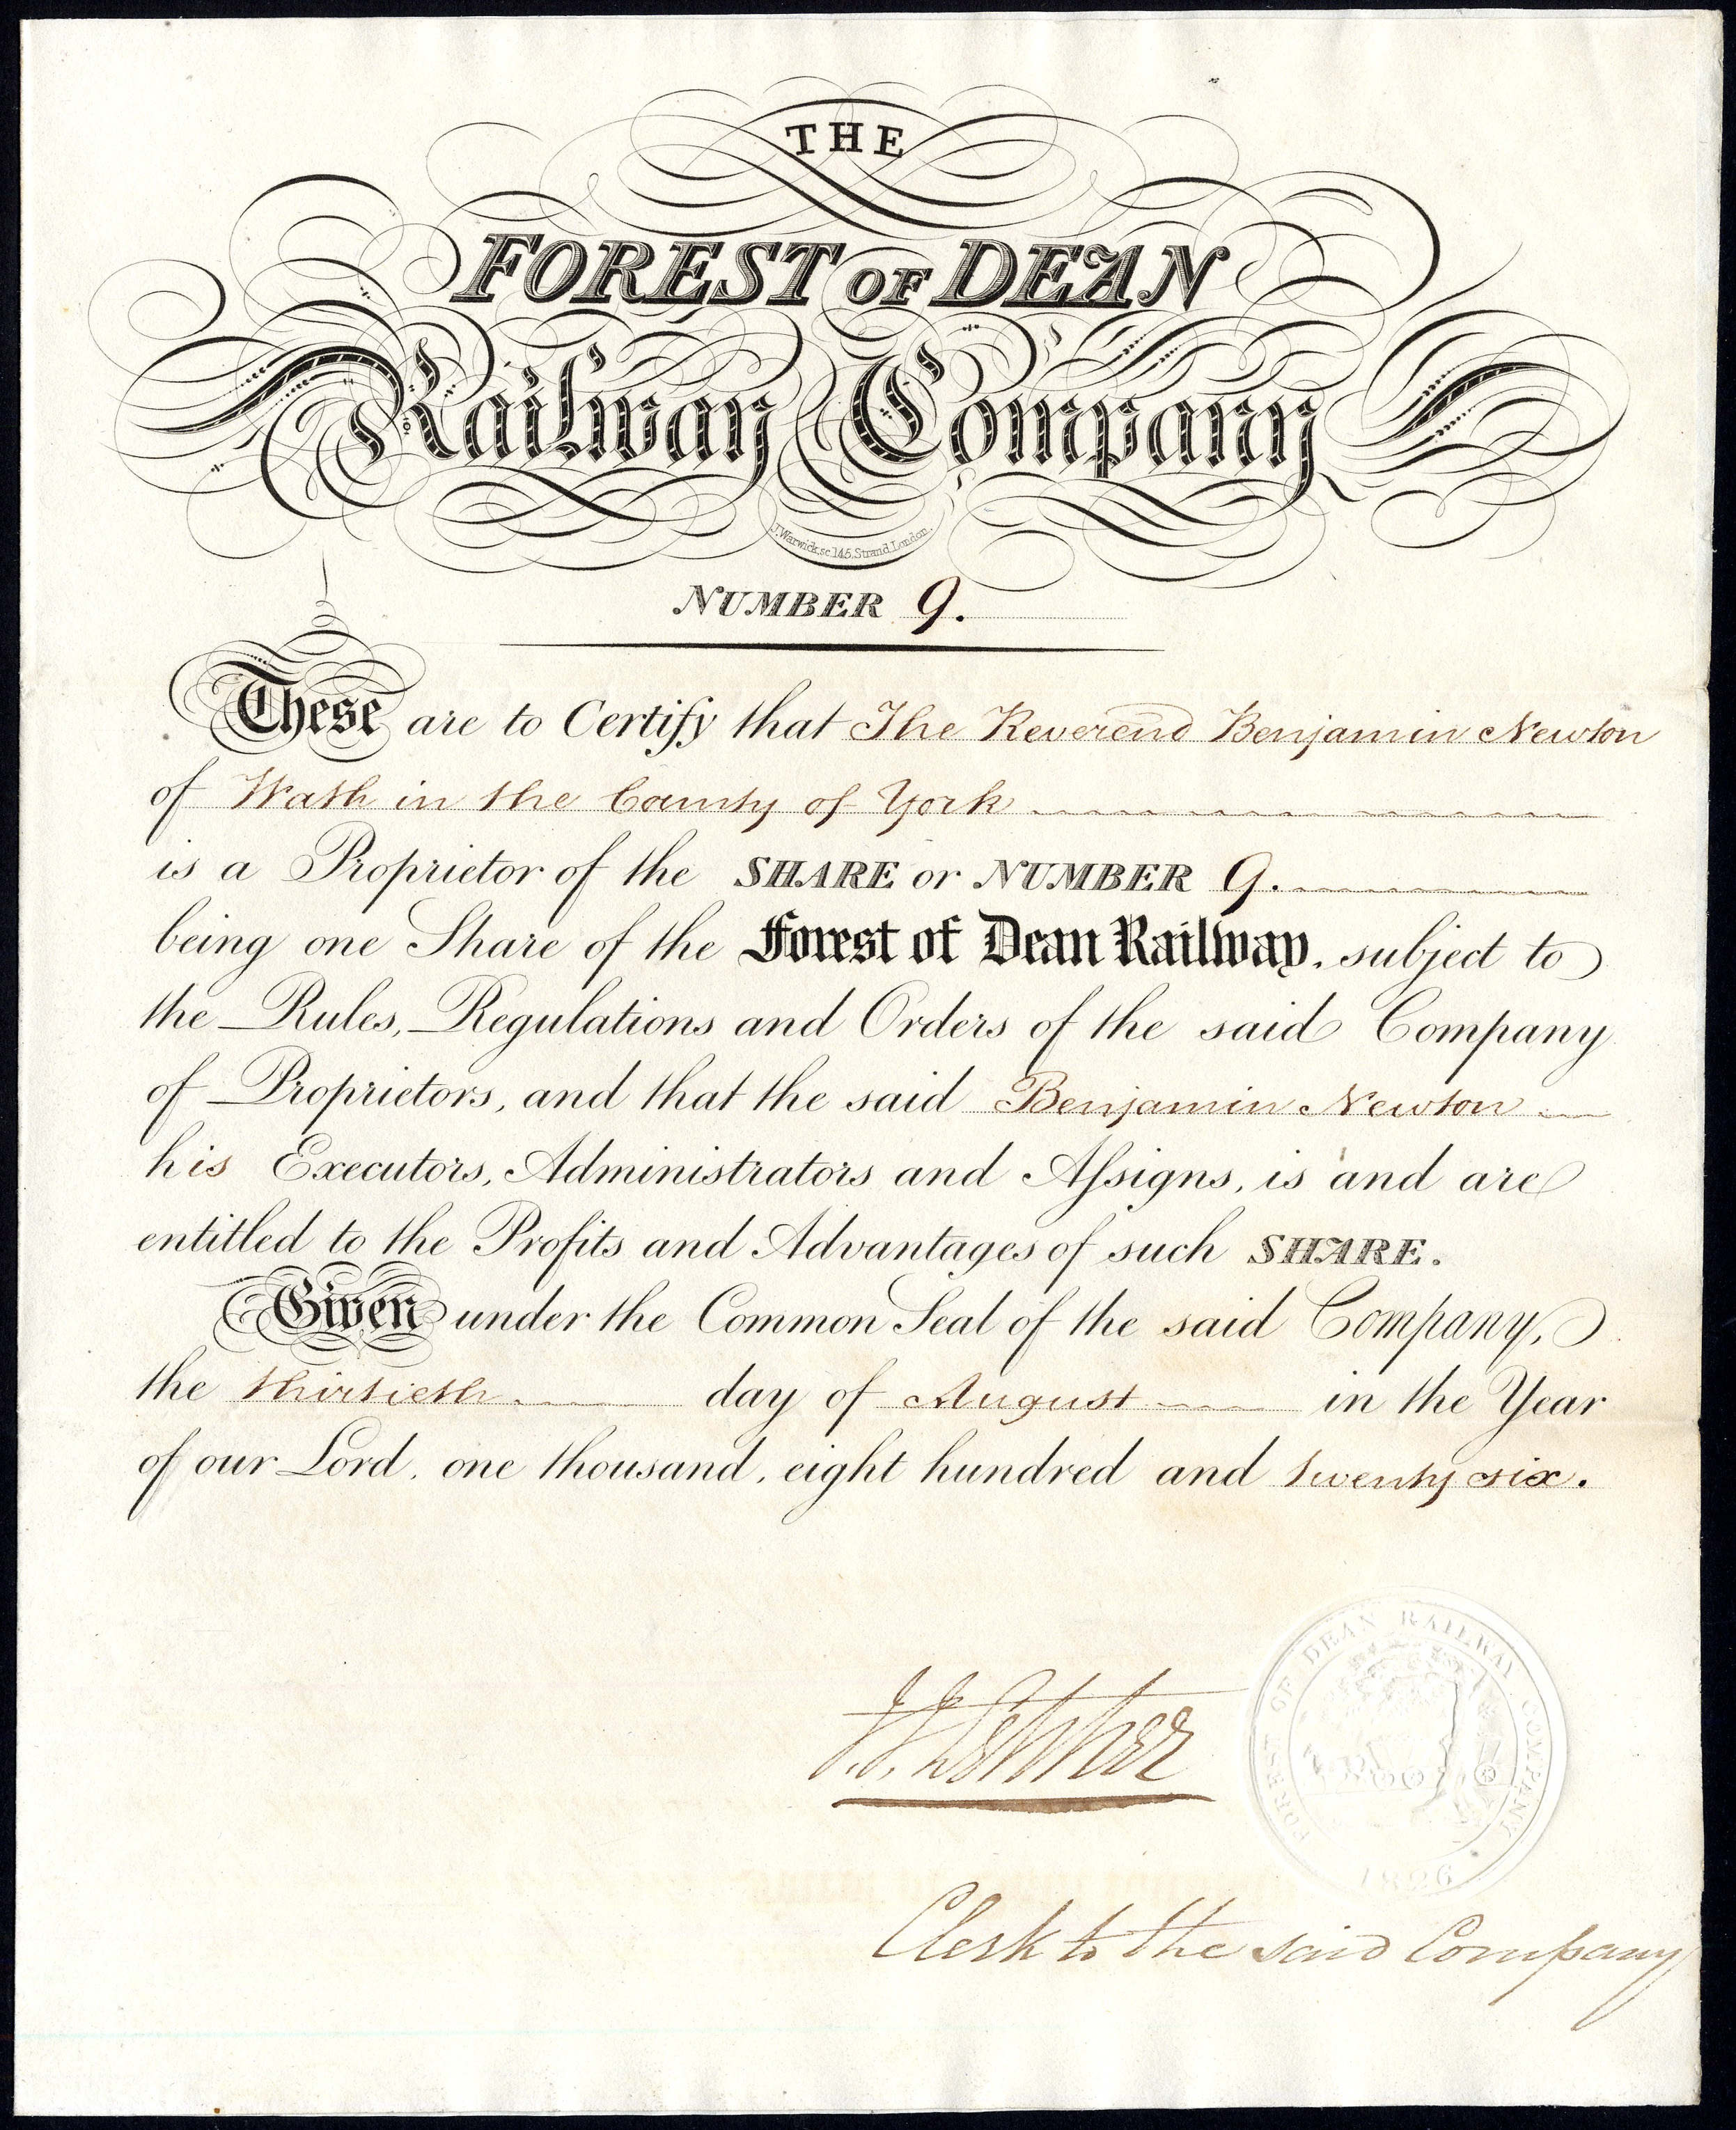 THE
FOREST OF DEAN
Railway Company
J. Warwick, sc. 145, Strand, London.
NUMBER 9.
These are to Certify that The Reverend Benjamin Newton
of Wath in the County of York
is a Proprietor of the SHARE or NUMBER 9.
being one Share of the Forest of Dean Railway, subject to
the Rules, Regulations and Orders of the said Company
of Proprietors, and that the said Benjamin Newton
his Executors, Administrators and Aſsigns, is and are
entitled to the Profits and Advantages of such SHARE.
Given under the Common Seal of the said Company,
the thirtieth day of August in the Year
of our Lord, one thousand, eight hundred and twenty six.
FOREST OF DEAN RAILWAY COMPANY
1826
Clerk to the said Company